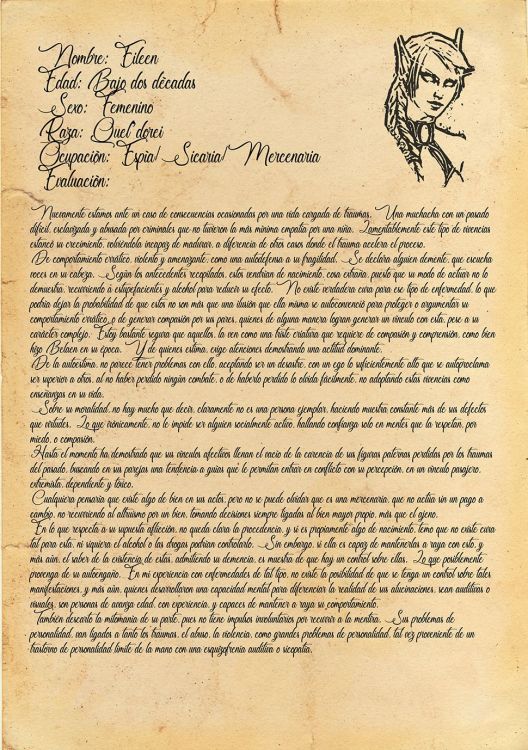 Nombre: Eileen
Edad: Bajo dos décadas
Sexo: Femenino
Raza: Quel'dorei
Ocupación: Espía/ Sicaria/ Mercenaria
Evaluación:
Nuevamente estamos ante un caso de consecuencias ocasionadas por una vida cargada de traumas. Una muchacha con un pasado
difícil, esclavizada y abusada por criminales que no tuvieron la más mínima empatía por una niña. Lamentablemente este tipo de vivencias
estancó su crecimiento, volviéndola incapaz de madurar, a diferencia de otros casos donde el trauma acelera el proceso.
De comportamiento errático, violento y amenazante, como una autodefensa a su fragilidad. Se declara alguien demente, que escucha
voces en su cabeza. Según los antecedentes recopilados, estos vendrían de nacimiento, cosa extraña, puesto que su modo de actuar no lo
demuestra, recurriendo a estupefacientes y alcohol para reducir su efecto. No existe verdadera cura para ese tipo de enfermedad, lo que
podría dejar la probabilidad de que estos no son más que una ilusión que ella misma se autoconvenció para proteger o argumentar su
comportamiento errático, o de generar compasión por sus pares, quienes de alguna manera logran generar un vínculo con esta, pese a su
carácter complejo. Estoy bastante segura que aquellos, la ven como una triste criatura que requiere de compasión y comprensión, como bien
hizo Belaen en su época. Y de quienes estima, exige atenciones demostrando una actitud dominante.
De la autoestima, no parece tener problemas con ello, aceptando ser un desastre, con un ego lo suficientemente alto que se autoproclama
ser superior a otros, al no haber perdido ningún combate, o de haberlo perdido lo olvida fácilmente, no adoptando estas vivencias como
enseñanzas en su vida.
Sobre su moralidad, no hay mucho que decir, claramente no es una persona ejemplar, haciendo muestra constante más de sus defectos
que virtudes. Lo que irónicamente, no le impide ser alguien socialmente activo, hallando confianza solo en mentes que la respetan, por
miedo, o compasión.
Hasta el momento ha demostrado que sus vínculos afectivos llenan el vacío de la carencia de sus figuras paternas perdidas por los traumas
del pasado, buscando en sus parejas una tendencia a guías que le permitan entrar en conflicto con su percepción, en un vínculo pasajero,
extremista, dependiente y tóxico.
Cualquiera pensaría que existe algo de bien en sus actos, pero no se puede olvidar que es una mercenaria, que no actúa sin un pago a
cambio, no recurriendo al altruismo por un bien, tomando decisiones siempre ligadas al bien mayor propio, más que el ajeno.
En lo que respecta a su supuesta aflicción, no queda clara la procedencia, y si es propiamente algo de nacimiento, temo que no existe cura
tal para esta, ni siquiera el alcohol o las drogas podrían controlarlo. Sin embargo, si ella es capaz de mantenerlas a raya con esto, y
más aún, el saber de la existencia de estas, admitiendo su demencia, es muestra de que hay un control sobre ellas. Lo que posiblemente
provenga de su autoengaño. En mi experiencia con enfermedades de tal tipo, no existe la posibilidad de que se tenga un control sobre tales
manifestaciones, y más aún, quienes desarrollaron una capacidad mental para diferenciar la realidad de sus alucinaciones, sean auditivas o
visuales, son personas de avanza edad, con experiencia, y capaces de mantener a raya su comportamiento.
También descarto la mitomanía de su parte, pues no tiene impulsos involuntarios por recurrir a la mentira. Sus problemas de
personalidad, van ligados a tanto los traumas, el abuso, la violencia, como grandes problemas de personalidad, tal vez proveniente de un
trastorno de personalidad límite de la mano con una esquizofrenia auditiva o sicopatía.